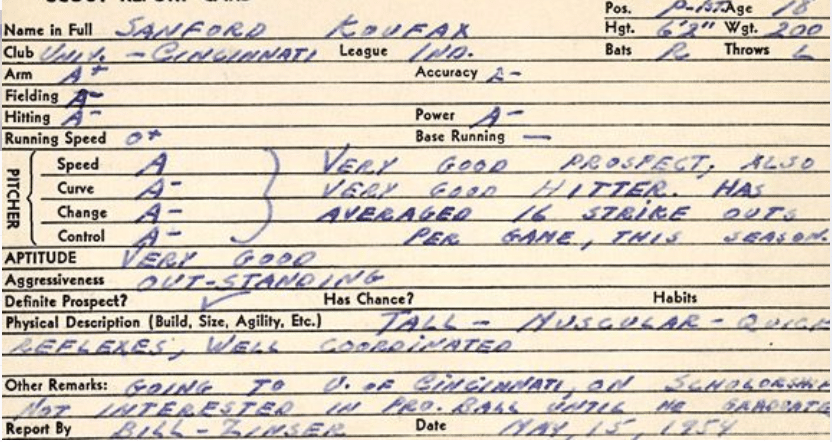 SCOUT REPORT CARD
Pos. P- Age 18
Name in Full SANFORD KOUFAX Hgt. 6'2" Wgt. 200
Club UNIV. - CINCINNATI League IND. Bats R Throws L
Arm A+ Accuracy A-
Fielding A-
Hitting A- Power A-
Running Speed O+ Base Running —
PITCHER
Speed A VERY GOOD PROSPECT, ALSO
Curve A- VERY GOOD HITTER. HAS
Change A- AVERAGED 16 STRIKE OUTS
Control A- PER GAME, THIS SEASON.
APTITUDE VERY GOOD
Aggressiveness OUT-STANDING
Definite Prospect? ✓ Has Chance? Habits
Physical Description (Build, Size, Agility, Etc.) TALL - MUSCULAR - QUICK
REFLEXES, WELL COORDINATED
Other Remarks: GOING TO U. OF CINCINNATI, ON SCHOLORSHIP
NOT INTERESTED IN PRO. BALL UNTIL HE GRADUATE
Report By BILL - ZINSER Date MAY, 15, 1954